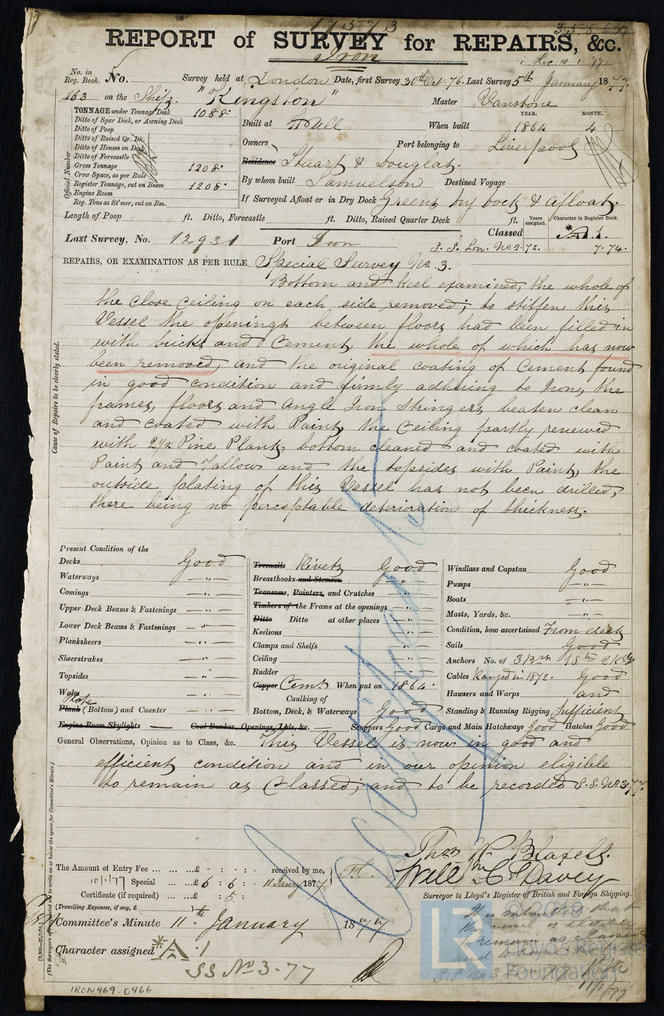 17373
REPORT of SURVEY for REPAIRS, &c.
Iron
(Rec 10.1.77)
No. in Reg. Book. No. Survey held at London Date, first Survey 30th Oct 76. Last Survey 5th January 1877.
163 on the Ship "Kingston" Master Vanstone
TONNAGE under Tonnage Deck 1088
Ditto of Spar Deck, or Awning Deck
Ditto of Poop
Ditto of Raised Qr. Dk.
Ditto of Houses on Deck
Ditto of Forecastle
Gross Tonnage 1208
Crew Space, as per Rule
Register Tonnage, cut on Beam 1208
Engine Room
Reg. Tons as St'mer, cut on Bm.
Official Number
YEAR. MONTH.
Built at Hull When built 1864 4
Owners Stuart & Douglas. Port belonging to Liverpool
Residence
By whom built Samuelson Destined Voyage
If Surveyed Afloat or in Dry Dock Greens dry dock & afloat.
Length of Poop ft. Ditto, Forecastle ft. Ditto, Raised Quarter Deck ft.
Years assigned. Character in Register Book.
Last Survey, No. 12931 Port Iron Classed A1.
S.S. Lon. No 2-72. 7-74.
REPAIRS, OR EXAMINATION AS PER RULE Special Survey No. 3.
Cause of Repairs to be clearly stated.
Bottom and Keel examined, the whole of
the close ceiling on each side removed; to stiffen this
Vessel the openings between floors had been filled in
with bricks and Cement, the whole of which has now
been removed and the original coating of Cement found
in good condition and firmly adhering to Iron, the
frames, floors and Angle Iron Stringers beaten clean
and coated with Paint, the Ceiling partly renewed
with 2½ Pine Plank, bottom cleaned and coated with
Paint and Tallow and the topsides with Paint, the
outside plating of this Vessel has not been drilled,
there being no perceptable deterioration of thickness.
Present Condition of the
Decks Good
Waterways "
Comings "
Upper Deck Beams & Fastenings "
Lower Deck Beams & Fastenings "
Planksheers "
Sheerstrakes "
Topsides "
Wales "
Plate
Plank (Bottom) and Counter "
Engine Room Skylights
Treenails Rivets Good
Breasthooks and Stemson "
Transoms, Pointers, and Crutches "
Timbers of the Frame at the openings "
Ditto Ditto at other places "
Keelsons "
Clamps and Shelfs "
Ceiling "
Rudder "
Copper Cemt. When put on 1864.
Caulking of
Bottom, Deck, & Waterways Good
Coal Bunker, Openings, Lids, &c.
Scuppers Good Cargo and Main Hatchways Good Hatches Good
Windlass and Capstan Good
Pumps "
Boats "
Masts, Yards, &c. "
Condition, how ascertained From deck
Sails Good
Anchors No. of 3
Cables Ranged in 1872. Good
Hawsers and Warps and
Standing & Running Rigging Sufficient
General Observations, Opinion as to Class, &c. This Vessel is now in good and
efficient condition and in our opinion eligible
to remain as Classed; and to be recorded S.S. No 3-77.
(The Surveyors are requested not to write on or below the space for Committee's Minute.)
The Amount of Entry Fee ... £ : : received by me,
10/1/77 Special ... £ 6 : 6 : 11 January 1877
Certificate (if required) .. £ : 5 :
(Travelling Expenses, if any, £ )
Will m C. Davey
Surveyor to Lloyd's Register of British and Foreign Shipping.
Committee's Minute 11th January 1877
Character assigned *A.1
SS No 3-77
11/1/77
© 2018
LR
Lloyd's Register
Foundation
IRON469-0466